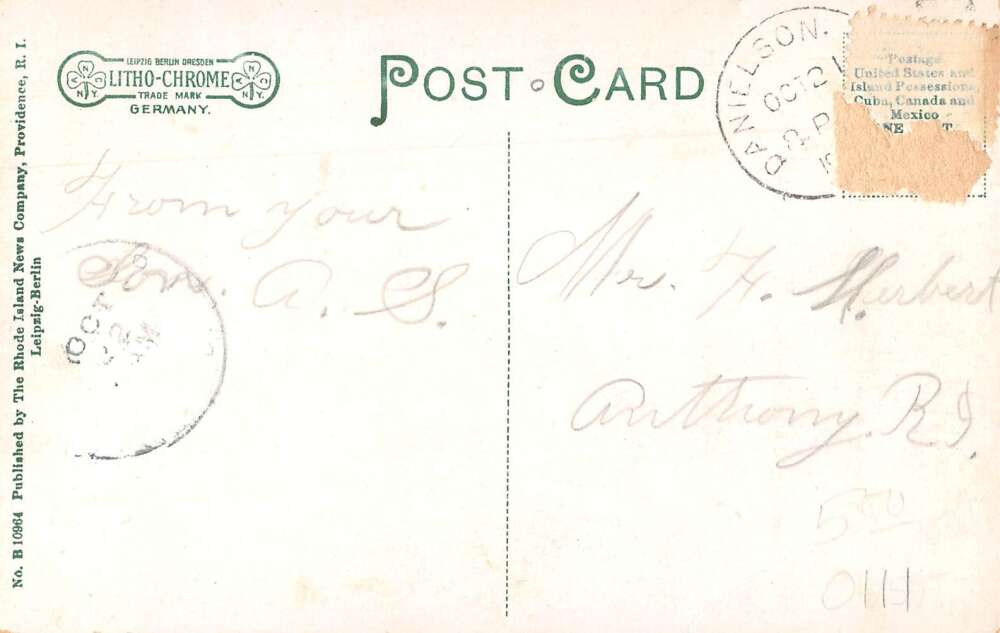 No. B 10964 Published by The Rhode Island News Company, Providence, R. I.
Leipzig-Berlin
LEIPZIG BERLIN DRESDEN
LITHO-CHROME
TRADE MARK
GERMANY.
A N C
N.Y.
A N C
N.Y.
POST CARD
DANIELSON.
OCT 2
8-P
Postage
United States and
Island Possessions
Cuba, Canada and
Mexico
NE T
From your
Son. A. S.
OCT
2
AM
Mr. F. Herbert
Anthony R.I.
5.00
01H